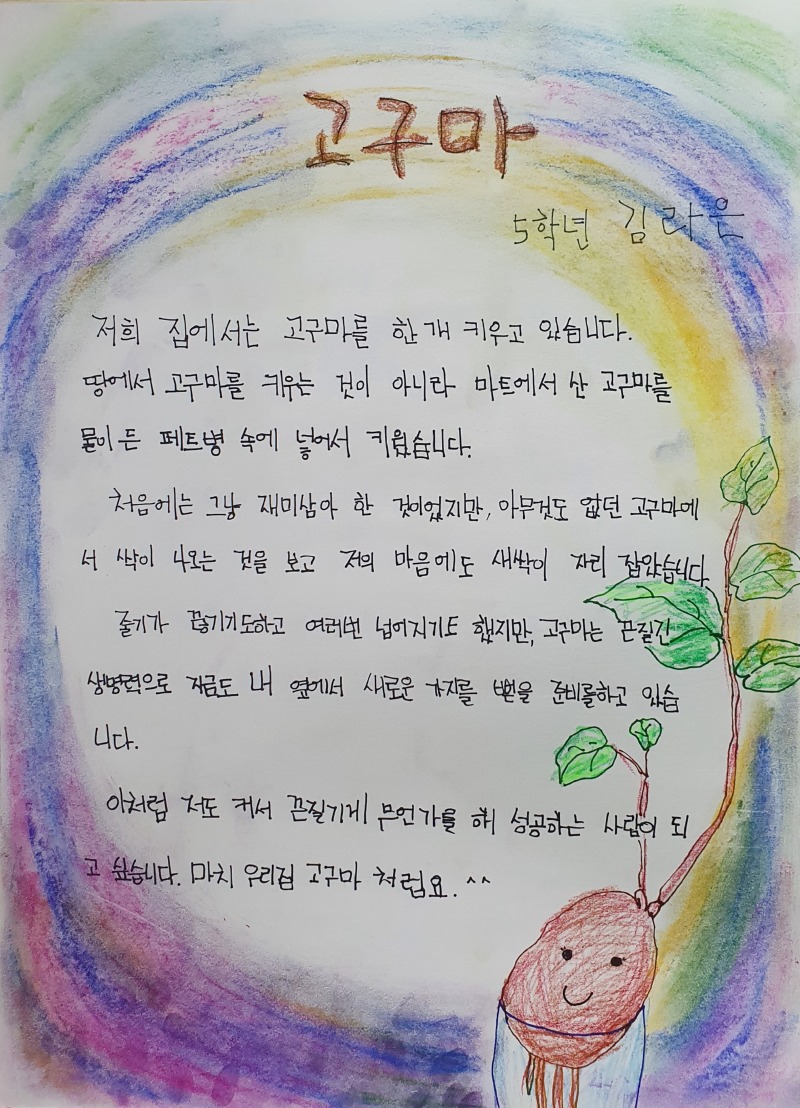 고구마
5학년 김라은
저희 집에서는 고구마를 한개 키우고 있습니다.
땅에서 고구마를 키우는 것이 아니라 마트에서 산 고구마를
물이 든 페트병 속에 넣어서 키웠습니다.
처음에는 그냥 재미삼아 한 것이었지만, 아무것도 없던 고구마에
서 싹이 나오는 것을 보고 저의 마음에도 새싹이 자리 잡았습니다
줄기가 끊기기도하고 여러번 넘어지기도 했지만, 고구마는 끈질긴
생명력으로 지금도 내 옆에서 새로운 가지를 뻗을 준비를하고 있습
니다.
이처럼 저도 커서 끈질기게 무언가를 해 성공하는 사람이 되
고 싶습니다. 마치 우리집 고구마 처럼요. ^^